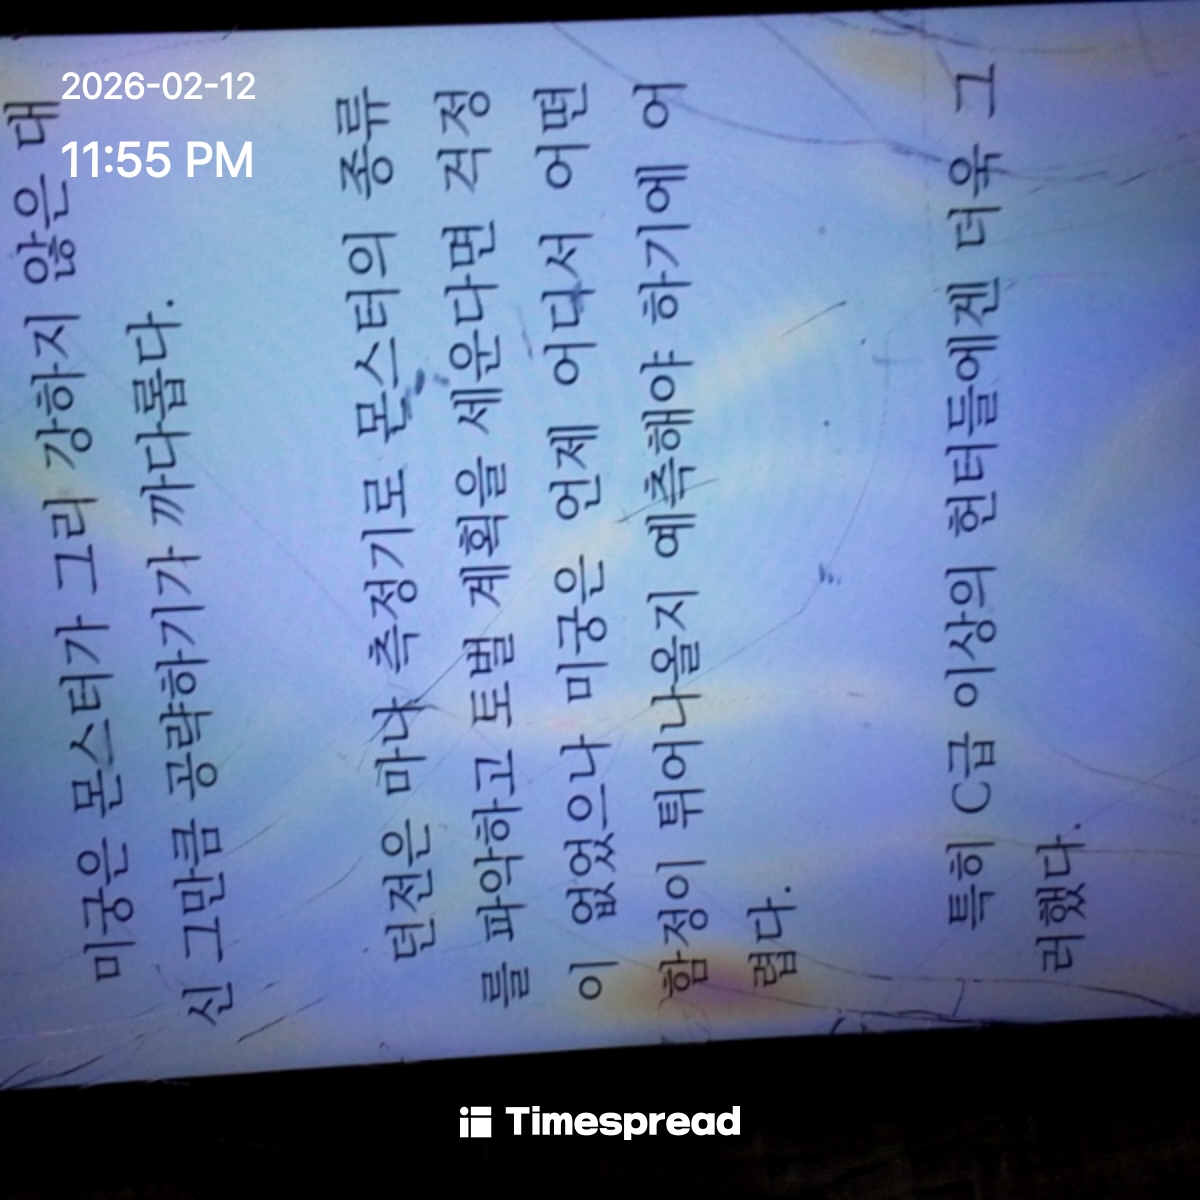 2026-02-12
11:55 PM
미궁은 몬스터가 그리 강하지 않은 대
신 그만큼 공략하기가 까다롭다.
던전은 마나 측정기로 몬스터의 종류
를 파악하고 토벌 계획을 세운다면 걱정
이 없었으나 미궁은 언제 어디서 어떤
함정이 튀어나올지 예측해야 하기에 어
렵다.
특히 C급 이상의 헌터들에겐 더욱 그
러했다.
Timespread